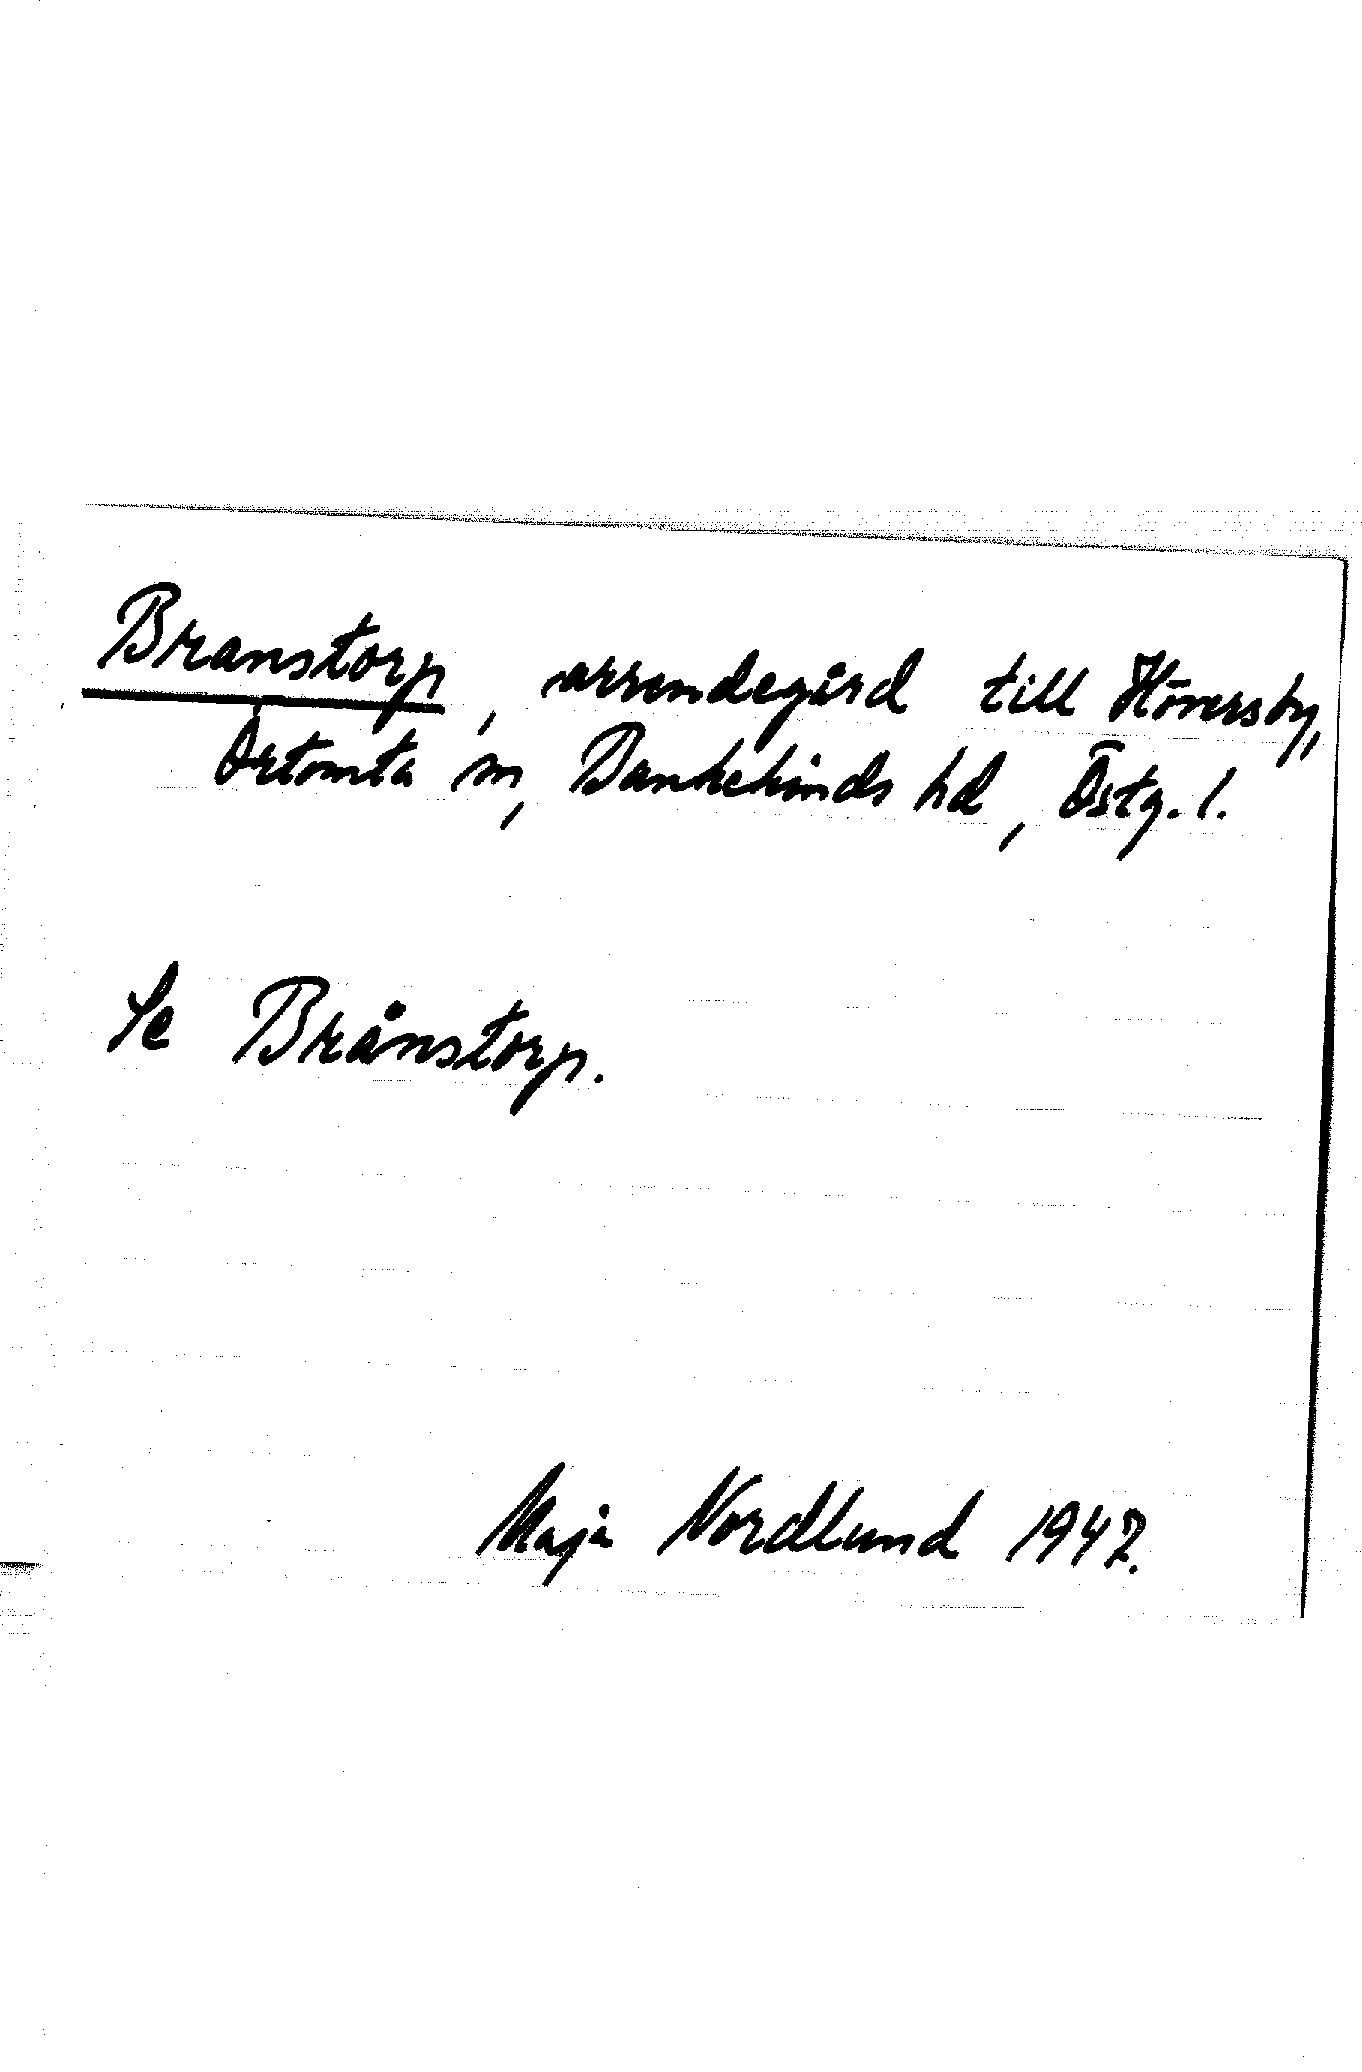 Branstorp, arrendegård till Höversby,
Örtomta sn, Bankekinds hd, Östg. l.
Se Brånstorp.
Maja Nordlund 1942.